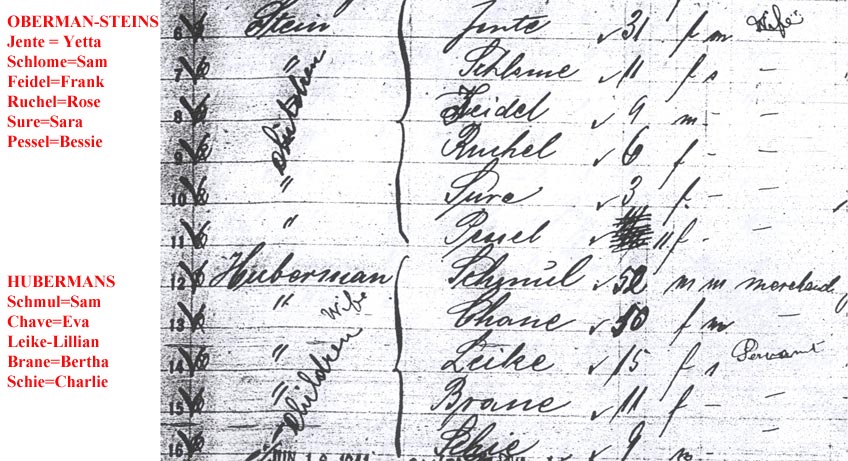 OBERMAN-STEINS
Jente = Yetta
Schlome=Sam
Feidel=Frank
Ruchel=Rose
Sure=Sara
Pessel=Bessie
HUBERMANS
Schmul=Sam
Chave=Eva
Leike-Lillian
Brane=Bertha
Schie=Charlie
6 Stein Jente 31 f m Wife
7 " Schlome 11 f s -
8 Children Feidel 9 m - -
9 " Ruchel 6 f - -
10 " Sure 3 f - -
11 " Pessel 11 f - -
12 Huberman Schmul 52 m m merchand
13 " Wife Chane 50 f m
14 " Leike 15 f s Servant
15 " Children Brane 11 f - -
16 " Schie 9 m -